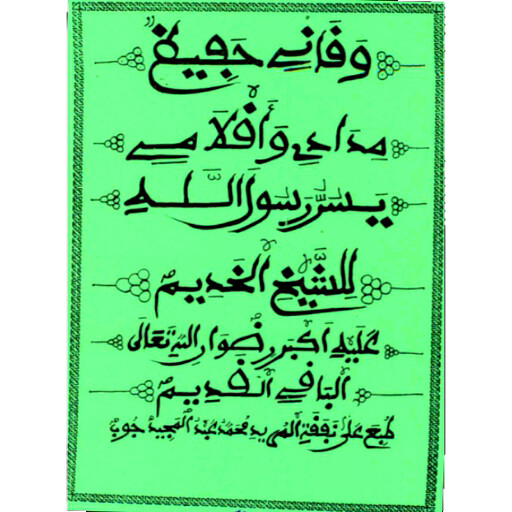 وَفَانِے حَفِيظٌ
مِدَادِے وَأَفْلَامِے
يَسُرُّ رَسُولَ اللَّهِ
لِلشَّيْخِ الْخَدِيمْ
عَلَيْهِ أَكْبَرُ رِضْوَانِ اللهِ تَعَالَى
الْبَافِے الْفَدِيمْ
طُبِعَ عَلَى نَفَفَةِ الْمُرِيدِ مُحَمَّدْ عَبْدُ الْمَجِيدْ جُوبْ